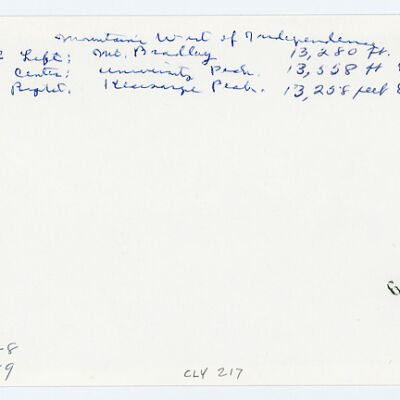 Mountains West of Independence
Left; Mt. Bradley 13,280 ft.
Center; University Peak. 13,558 ft
Right. Kearsarge Peak. 13,258 feet
6
8
9
CLY 217